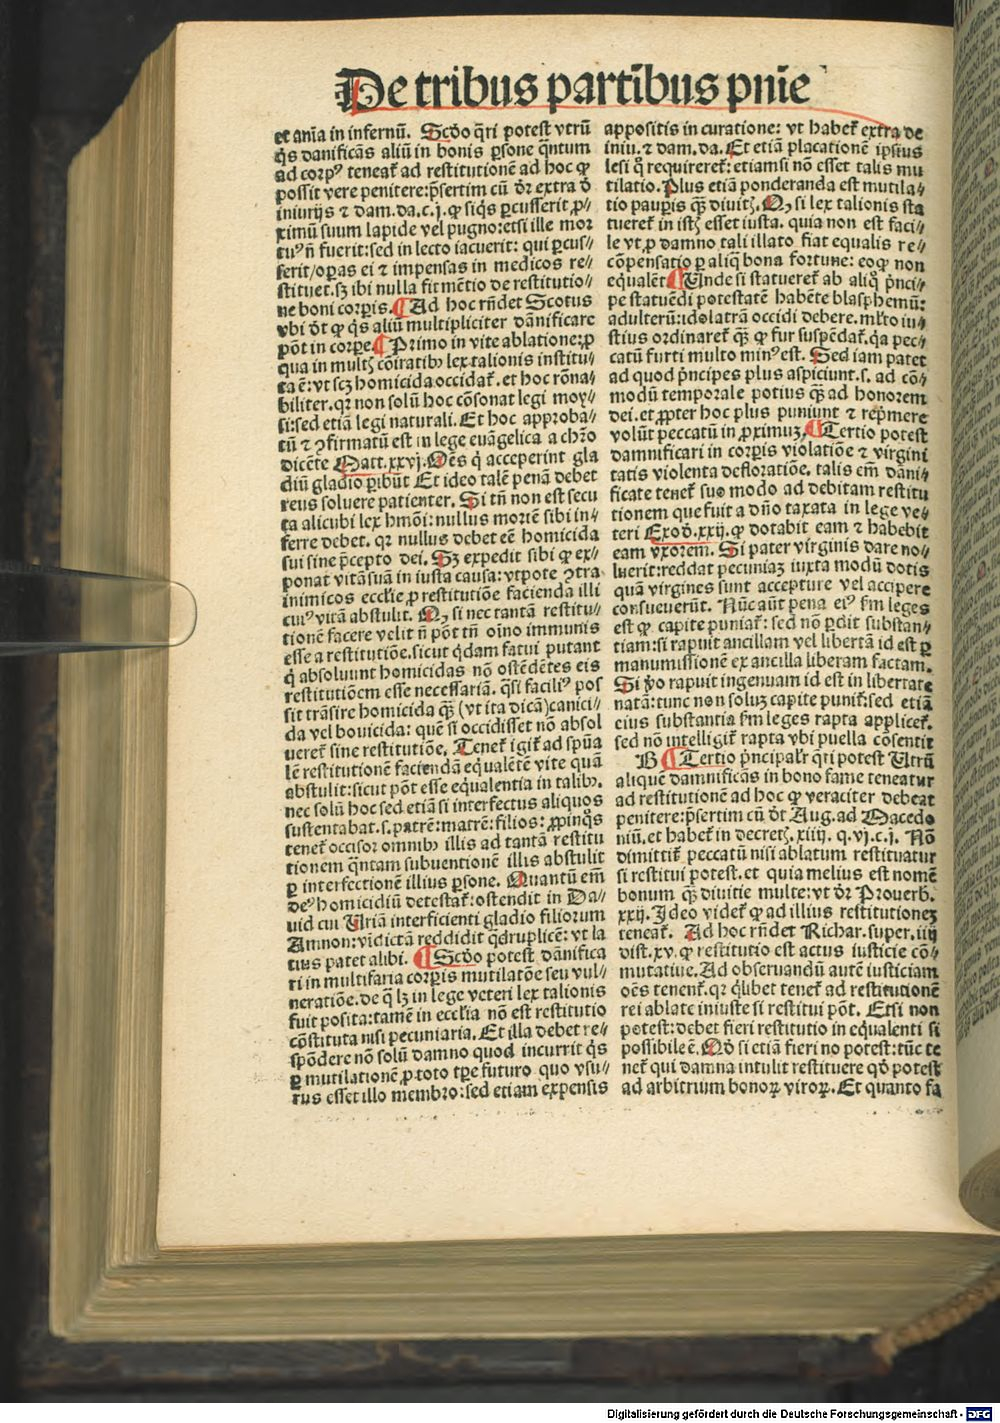 De tribus partibus pnīe
et anīa in infernū. Scḋo q̄ri potest vtrū
q̇s danificās aliū in bonis ꝑsone q̄ntum
ad corpꝰ teneat̄ ad restitutionē ad hoc ꝙ
possit vere penitere: p̄sertim cū ḋr extra ḋ
iniurijs ⁊ dam.da.c.j. ꝙ siq̇s ꝑcusserit ꝓ⸗
ximū suum lapide vel pugno: etsi ille mor
tuꝰ n̄ fuerit: sed in lecto iacuerit: qui ꝑcus⸗
serit/oꝑas ei ⁊ impensas in medicos re⸗
stituet. sꝫ ibi nulla fit mētio de restitutio⸗
ne boni corꝑis. ¶ Ad hoc rn̄det Scotus
vbi ḋt ꝙ q̇s aliū multipliciter dānificare
pōt in corꝑe. ¶ Primo in vite ablatione: ꝓ
qua in multꝭ cōiratibꝰ lex talionis institu⸗
ta ē: vt scꝫ homicida occidat̄. et hoc rōna⸗
biliter. qꝛ non solū hoc cōsonat legi moy⸗
si: sed etiā legi naturali. Et hoc approba⸗
tū ⁊ ꝯfirmatū est in lege euāgelica a chr̄o
dicēte Matt.xxvj. Oēs q̇ acceperint gla
diū gladio ꝑibūt Et ideo talē penā debet
reus soluere patienter. Si tn̄ non est secu
ta alicubi lex hmōi: nullus mortē sibi in⸗
ferre debet. qꝛ nullus debet eē homicida
sui sine p̄cepto dei. Sꝫ expedit sibi ꝙ ex⸗
ponat vitā suā in iusta causa: vtpote ꝯtra
inimicos ecclīe ꝓ restitutiōe facienda illi
cuiꝰ vitā abstulit. Qꝫ si nec tantā restitu⸗
tionē facere velit n̄ pōt tn̄ oīno immunis
esse a restitutiōe. sicut q̇dam fatui putant
q̇ absoluunt homicidas nō ostēdētes eis
restitutiōem esse necessariā. q̄si faciliꝰ pos
sit trāsire homicida q̄ꝫ (vt ita dicā) canici⸗
da vel bouicida: quē si occidisset nō absol
ueret̄ sine restitutiōe. Tenet̄ igit̄ ad spūa
lē restitutionē faciendā equalētē vite quā
abstulit: sicut pōt esse eq̇ualentia in talibꝰ.
nec solū hoc sed etiā si interfectus aliquos
sustentabat. s. patrē: matrē: filios: ꝓpinq̇s
tenet̄ occisor omnibꝰ illis ad tantā restitu
tionem q̄ntam subuentionē illis abstulit
ꝑ interfectionē illius ꝑsone. Quantū em̄
deꝰ homicidiū detestat̄: ostendit in Da⸗
uid cui Uriā interficienti gladio filiorum
Amnon: vīdictā reddidit q̇druplicē: vt la
tius patet alibi. ¶ Scḋo potest dānifica
ri in multifaria corꝑis mutilatōe seu vul⸗
neratiōe. de q̄ lꝫ in lege veteri lex talionis
fuit posita: tamē in ecclīa nō est restitutio
cōstituta nisi pecuniaria. Et illa debet re⸗
spōdere nō solū damno quod incurrit q̇s
ꝑ mutilationē ꝓ toto tp̄e futuro quo vsu⸗
rus esset illo membro: sed etiam expensis
appositis in curatione: vt habet̄ extra de
iniu. ⁊ dam. da. Et etiā placationē ipsius
lesi q̇ requireret̄: etiamsi nō esset talis mu
tilatio. Plus etiā ponderanda est mutila⸗
tio pauꝑis q̄ꝫ diuitꝭ. Qꝫ si lex talionis sta
tueret̄ in istꝭ esset iusta. quia non est faci⸗
le vt ꝓ damno tali illato fiat equalis re⸗
cōpensatio ꝑ aliq̄ bona fortune: eo ꝙ non
equalēt ¶ Unde si statueret̄ ab aliq̇ p̄nci⸗
pe statuēdi potestatē habēte blasphemū:
adulterū: idolatrā occidi debere. ml̄to iu⸗
stius ordinaret̄ q̄ꝫ ꝙ fur suspēdat̄. q̇a pec⸗
catū furti multo minꝰ est. Sed iam patet
ad quod p̄ncipes plus aspiciunt. s. ad cō⸗
modū temporale potius q̄ꝫ ad honorem
dei. et ꝓpter hoc plus puniunt ⁊ rep̄mere
volūt peccatū in ꝓximuꝫ. ¶ Tertio potest
damnificari in corꝑis violatiōe ⁊ virgini
tatis violenta defloratiōe. talis em̄ dāni⸗
ficate tenet̄ suo modo ad debitam restitu
tionem que fuit a dn̄o taxata in lege ve⸗
teri Exoḋ.xxij. ꝙ dotabit eam ⁊ habebit
eam vxorem. Si pater virginis dare no⸗
luerit: reddat pecuniaꝫ iuxta modū dotis
quā virgines sunt accepture vel accipere
consueuerūt. Nūc aūt pena eiꝰ fm leges
est ꝙ capite puniat̄: sed nō ꝑdit substan⸗
tiam: si rapuit ancillam vel libertā id est ꝑ
manumissionē ex ancilla liberam factam.
Si ꝟo rapuit ingenuam id est in libertate
natā: tunc non soluꝫ capite punit̄: sed etiā
eius substantia fm leges rapta applicet̄.
sed nō intelligit̄ rapta vbi puella cōsentit
B ¶ Tertio p̄ncipalr̄ q̄ri potest Utrū
aliquē damnificās in bono fame teneatur
ad restitutionē ad hoc ꝙ veraciter debeat
penitere: p̄sertim cū ḋt Aug. ad Macedo
niū. et habet̄ in decretꝭ. xiiij. q. vj. c. j. Nō
dimittit̄ peccatū nisi ablatum restituatur
si restitui potest. et quia melius est nomē
bonum q̄ꝫ diuitie multe: vt ḋr Prouerb.
xxij. Ideo videt̄ ꝙ ad illius restitutioneꝫ
teneat̄. Ad hoc rn̄det Richar. super. iiij
dist. xv. ꝙ restitutio est actus iusticie cō⸗
mutatiue. Ad obseruandū autē iusticiam
oēs tenent̄. qꝛ q̇libet tenet̄ ad restitutionē
rei ablate iniuste si restitui pōt. Etsi non
potest: debet fieri restitutio in eq̇ualenti si
possibile ē. Qḋ si etiā fieri no potest: tūc te
net̄ qui damna intulit restituere qḋ potest
ad arbitrium bonoꝝ viroꝝ. Et quanto fa
Digitalisierung gefördert durch die Deutsche Forschungsgemeinschaft - DFG